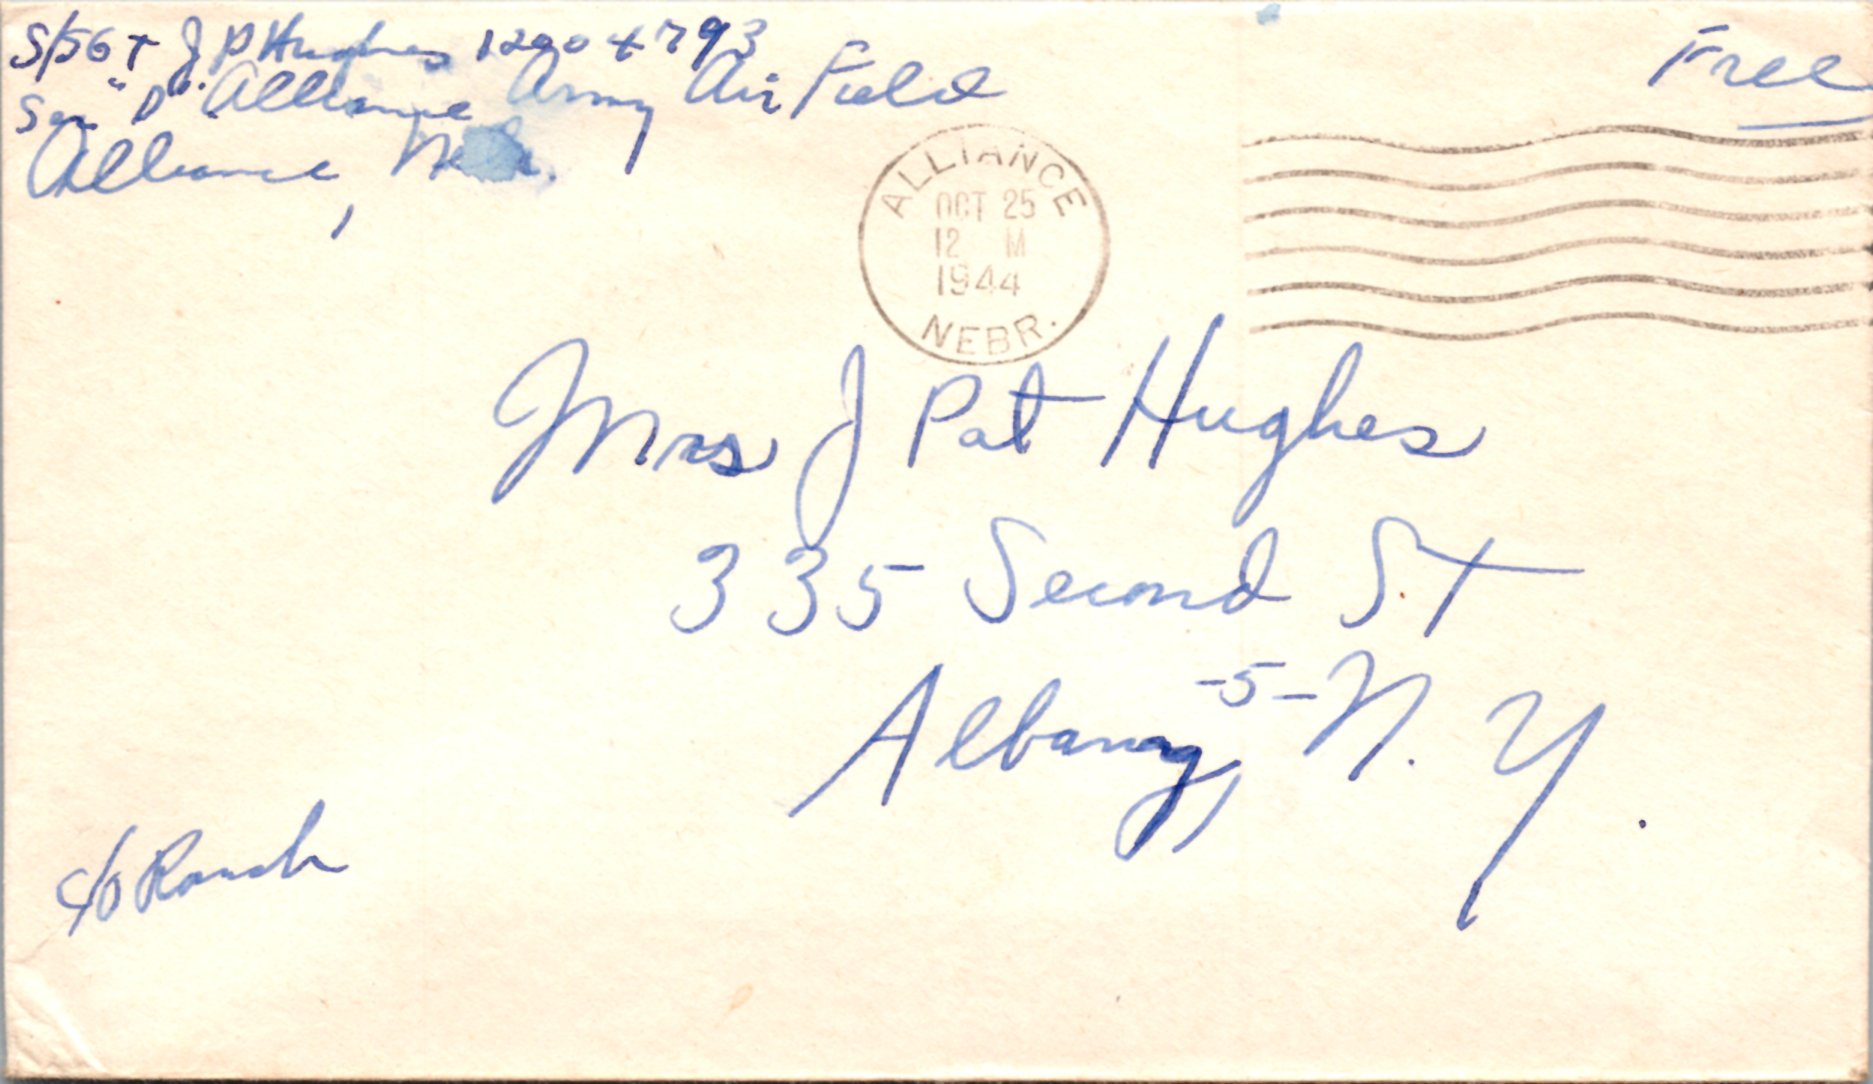 S/SGT J P Hughes 12204793
Sec "D" Alliance Army Air Field
Alliance, Nebr.
Free
ALLIANCE
OCT 25
12 M
1944
NEBR.
Mrs J Pat Hughes
335 Second St
Albany, -5- N. Y.
c/o Roach